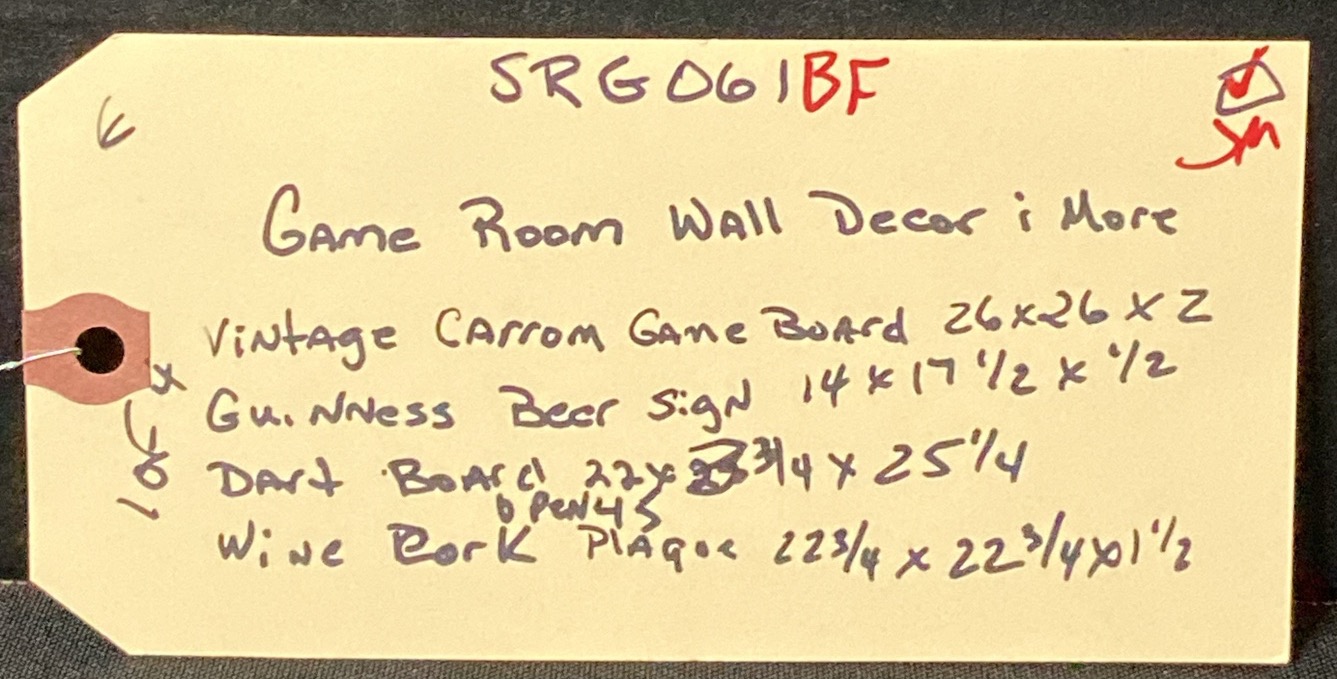 SRG061BF
Game Room Wall Decor & More
Vintage Carrom Game Board 26 x 26 x 2
Guinness Beer Sign 14 x 17 1/2 x 1/2
Dart Board 22 x 3/4 x 25 1/4
open 45
Wine Cork Plaque 22 3/4 x 22 3/4 x 1 1/2